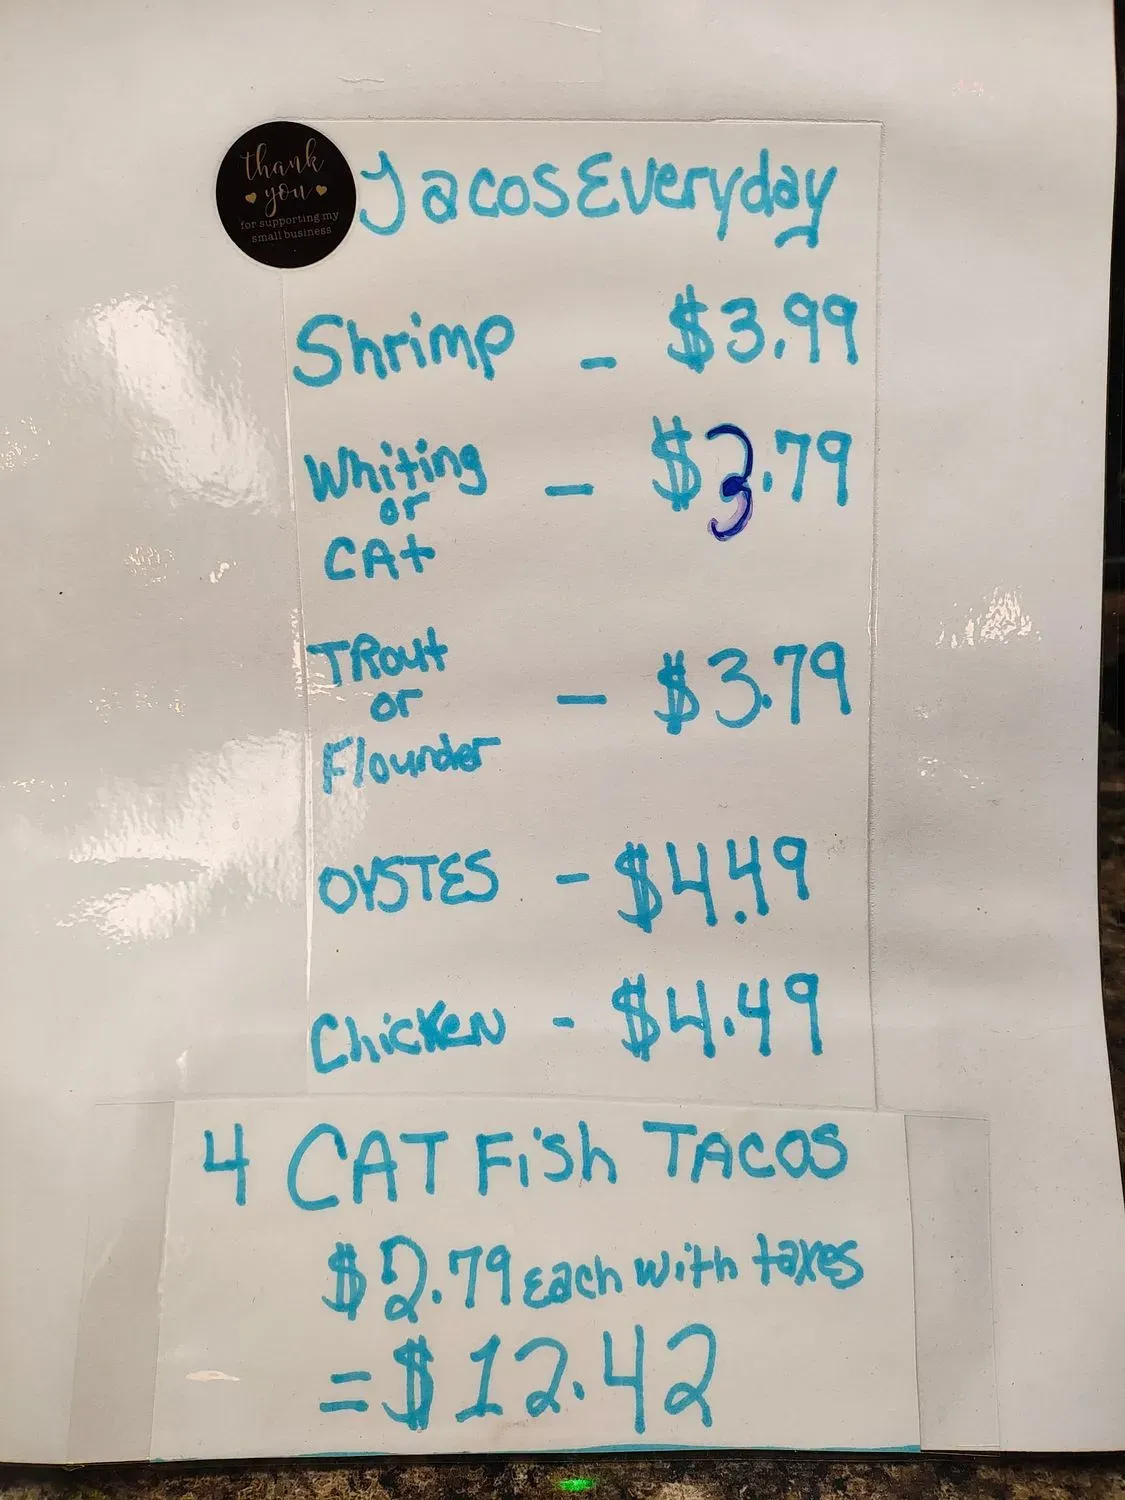 thank
you
for supporting my
small business
Tacos Everyday
Shrimp - $3.99
Whiting
or - $3.79
CAt
TRout
or - $3.79
Flounder
OYSTES - $4.49
Chicken - $4.49
4 CAT Fish TACOS
$2.79 each with taxes
= $12.42